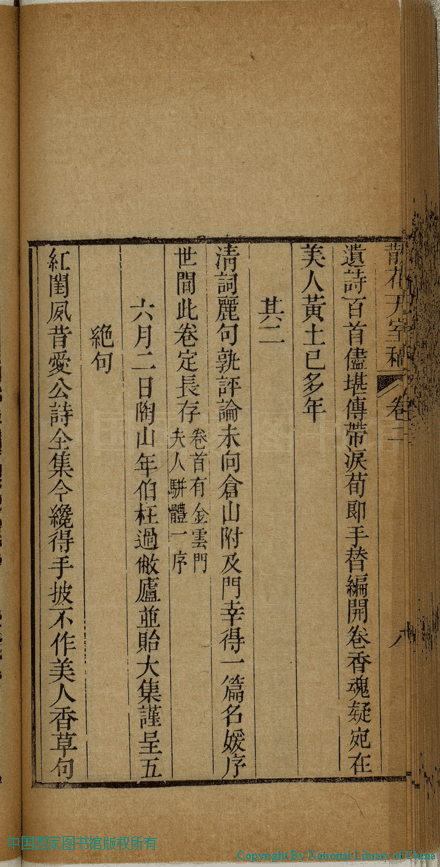 散花天室稿 卷二 八
遺詩百首儘堪傳帶淚荀郎手替編開卷香魂疑宛在
美人黃土已多年
其二
清詞麗句孰評論未向倉山附及門幸得一篇名媛序
世間此卷定長存 卷首有金雲門
夫人駢體一序
六月二日陶山年伯枉過敝廬並貽大集謹呈五
絶句
紅閨夙昔愛公詩全集今纔得手披不作美人香草句
中国国家图书馆版权所有
Copyright By National Library of China